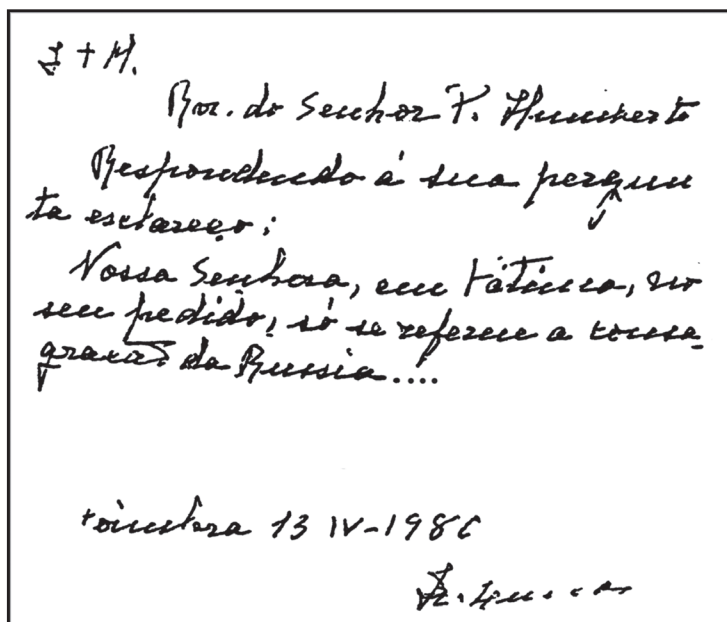 J + M.
Rev. do Senhor P. Humberto
Respondendo á sua pergun
ta esclareço:
Nossa Senhora, em Fátima, no
seu pedido, só se referiu a consa-
gração da Russia....
Coimbra 13 IV-1980